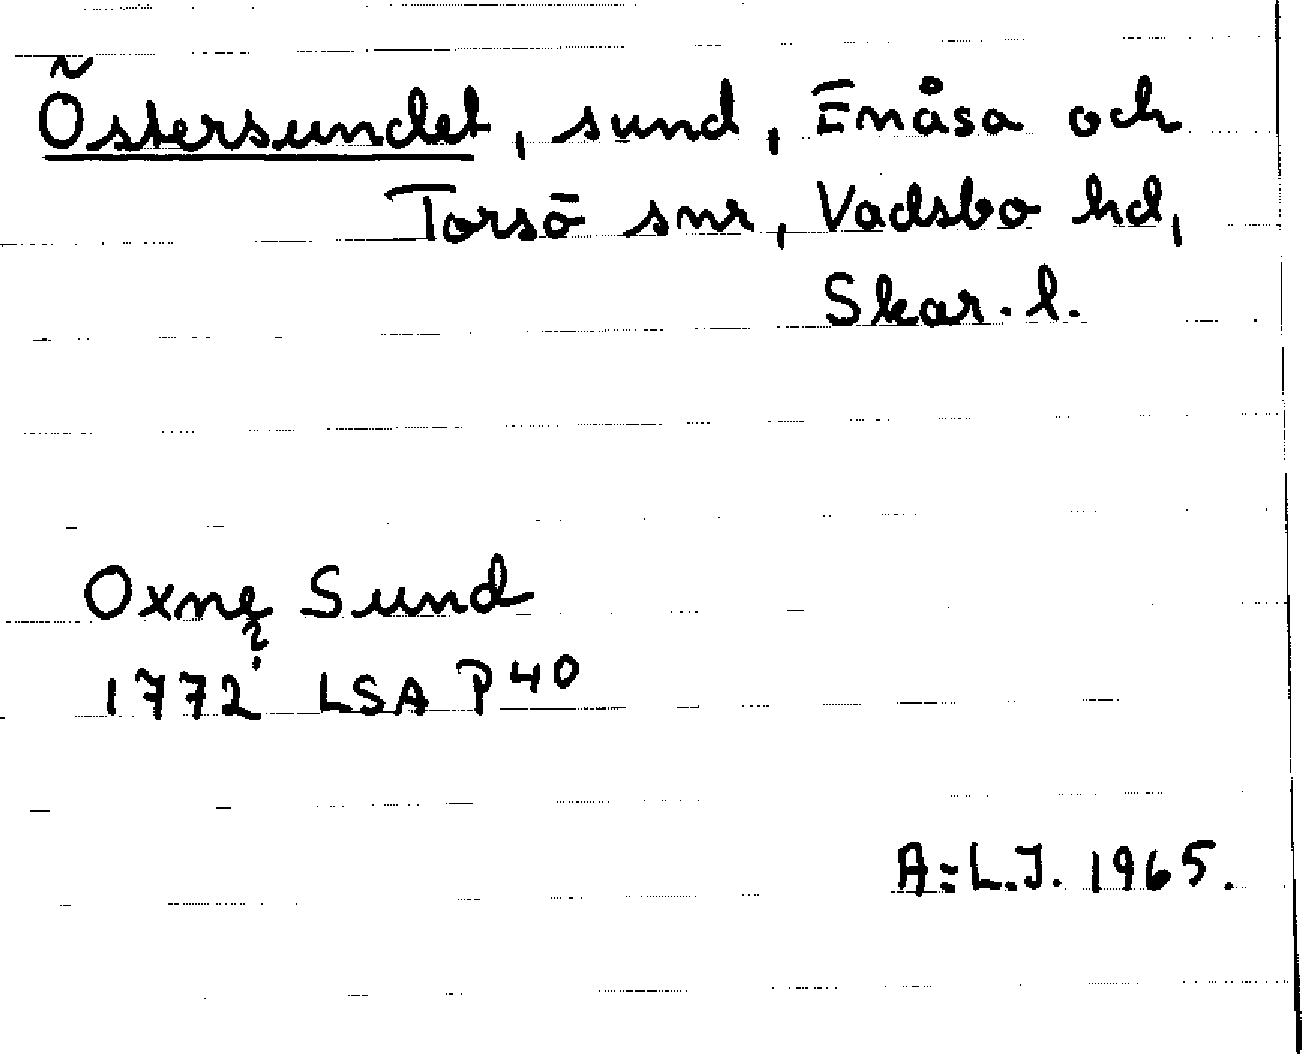 Östersundet, sund, Enåsa och
Torsö snr, Vadsbo hd,
Skar. l.
Oxne Sund
?
1772 LSA P 40
A:L.J. 1965.